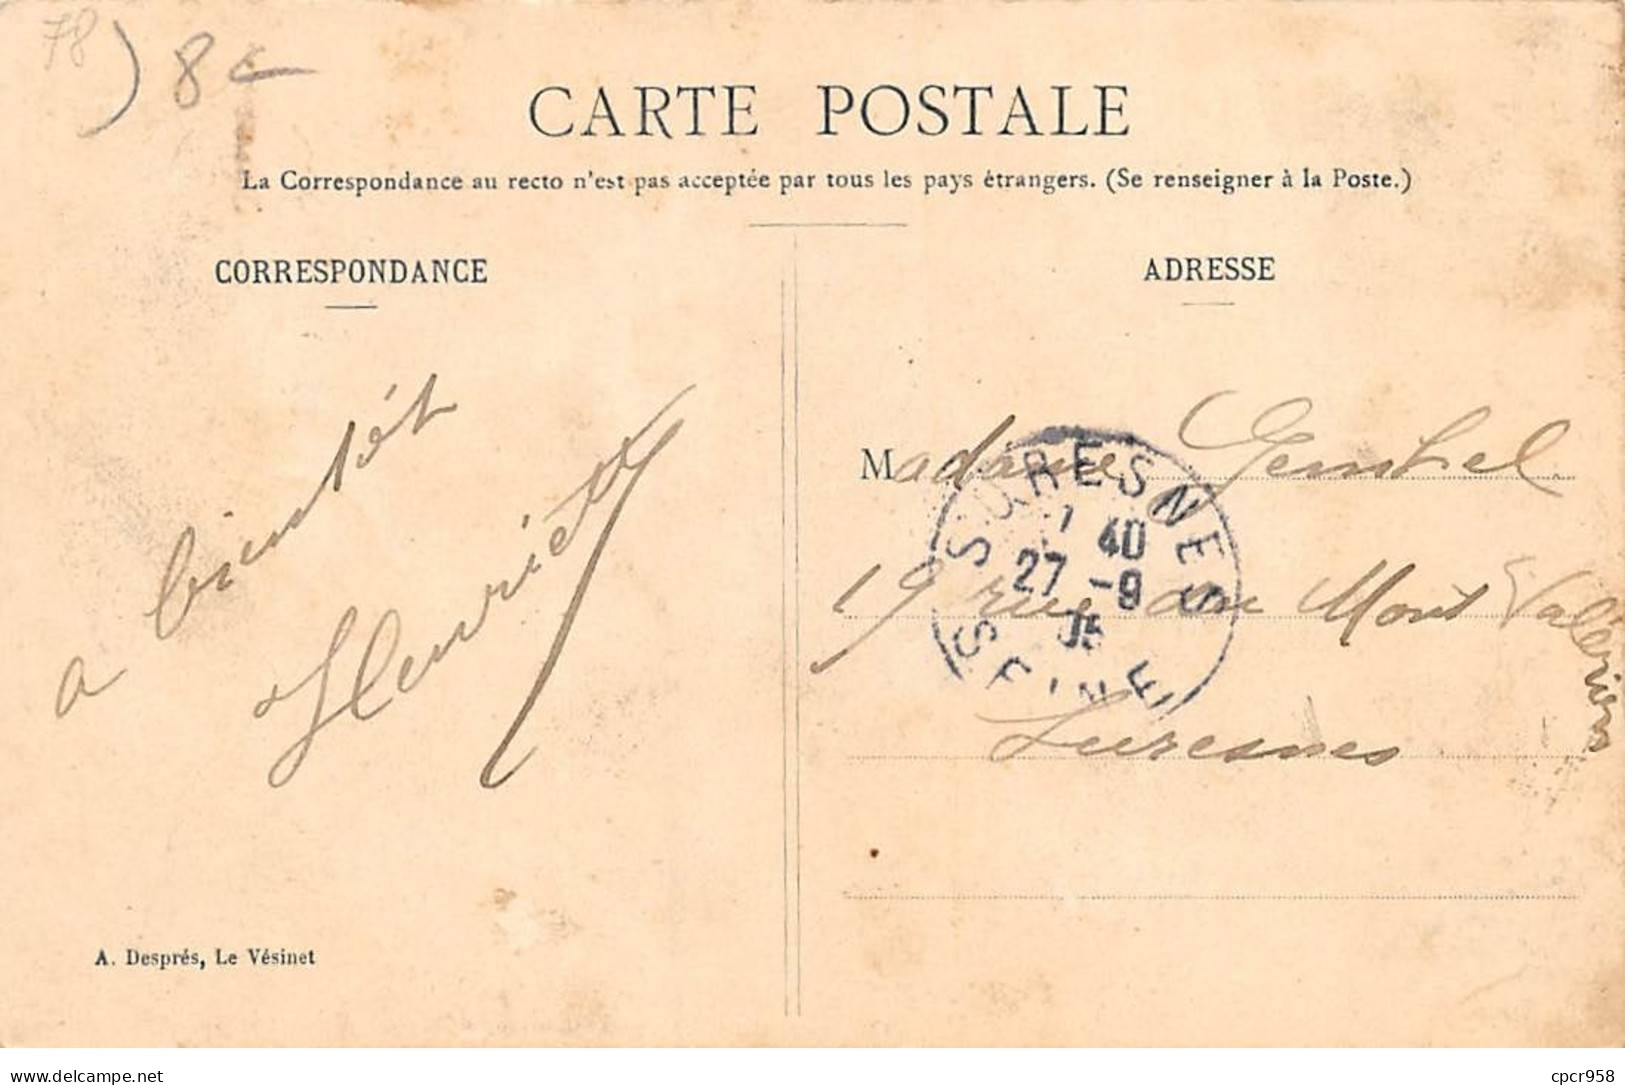 78
8€
CARTE POSTALE
La Correspondance au recto n'est pas acceptée par tous les pays étrangers. (Se renseigner à la Poste.)
CORRESPONDANCE
ADRESSE
a bientôt
Henriette
Madame
19 rue du Mont Valérien
Suresnes
SURESNES
7 40
27 -9
05
SEINE
A. Després, Le Vésinet
www.delcampe.net
cpcr958